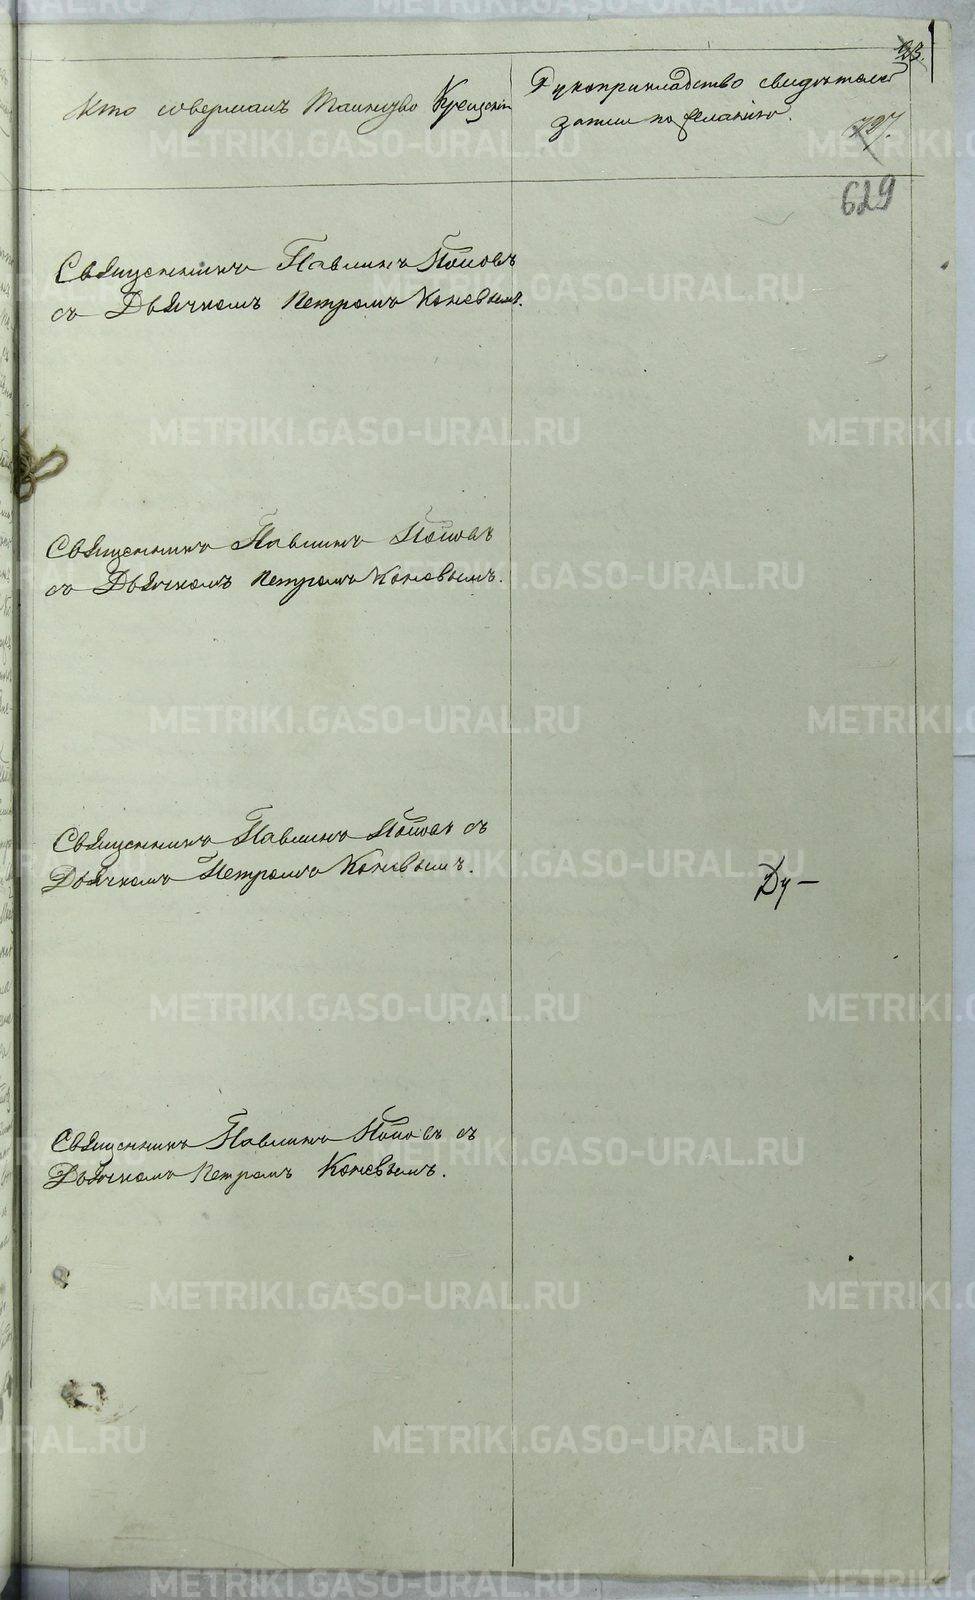 23.
Кто совершалъ Таинство Крещенія
Рукоприкладство свидѣтелей
записи по желанію.
727.
629
Священникъ Павлинъ Поповъ
съ Дьячкомъ Петромъ Коневымъ.
Священникъ Павлинъ Поповъ
съ Дьячкомъ Петромъ Коневымъ.
Священникъ Павлинъ Поповъ съ
Дьячкомъ Петромъ Коневымъ.
Ду —
Священникъ Павлинъ Поповъ съ
Дьячкомъ Петромъ Коневымъ.
METRIKI.GASO-URAL.RU